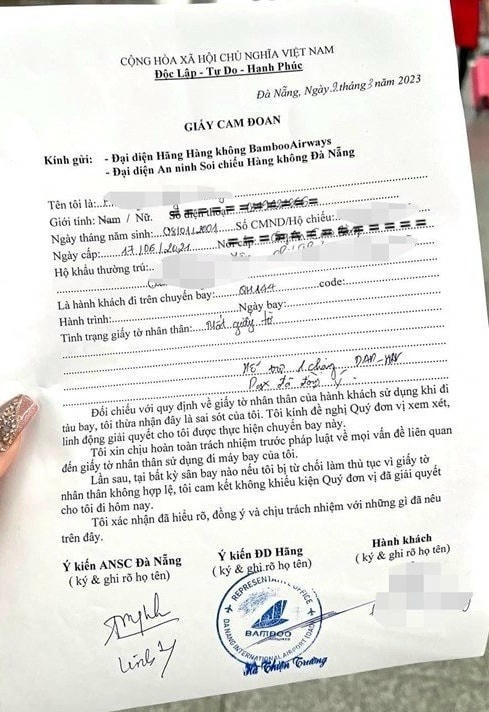 CỘNG HÒA XÃ HỘI CHỦ NGHĨA VIỆT NAM
Độc Lập - Tự Do - Hạnh Phúc
Đà Nẵng, Ngày 9 tháng 3 năm 2023
GIẤY CAM ĐOAN
Kính gửi: - Đại diện Hãng Hàng không BambooAirways
- Đại diện An ninh Soi chiếu Hàng không Đà Nẵng
Tên tôi là:
Giới tính: Nam / Nữ. Số điện thoại:
Ngày tháng năm sinh: 08/01/2001 Số CMND/Hộ chiếu:
Ngày cấp: 17/06/2021
Hộ khẩu thường trú:
Là hành khách đi trên chuyến bay: QH144 code:
Hành trình: Ngày bay:
Tình trạng giấy tờ nhân thân: Mất giấy tờ
DAD-HAN
Đối chiếu với quy định về giấy tờ nhân thân của hành khách sử dụng khi đi
tàu bay, tôi thừa nhận đây là sai sót của tôi. Tôi kính đề nghị Quý đơn vị xem xét,
linh động giải quyết cho tôi được thực hiện chuyến bay này.
Tôi xin chịu hoàn toàn trách nhiệm trước pháp luật về mọi vấn đề liên quan
đến giấy tờ nhân thân sử dụng đi máy bay của tôi.
Lần sau, tại bất kỳ sân bay nào nếu tôi bị từ chối làm thủ tục vì giấy tờ
nhân thân không hợp lệ, tôi cam kết không khiếu kiện Quý đơn vị đã giải quyết
cho tôi đi hôm nay.
Tôi xác nhận đã hiểu rõ, đồng ý và chịu trách nhiệm với những gì đã nêu
trên đây.
Ý kiến ANSC Đà Nẵng Ý kiến ĐD Hãng Hành khách
( ký & ghi rõ họ tên) ( ký & ghi rõ họ tên) ( ký & ghi rõ họ tên)
REPRESENTATIVE OFFICE
BAMBOO
AIRWAYS
DA NANG INTERNATIONAL AIRPORT (DAD)
Linh
Hà Thiện Trường